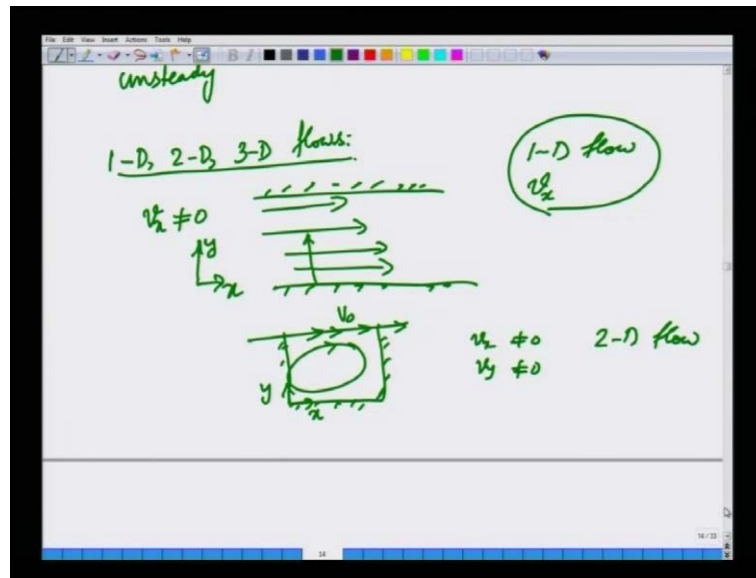 File Edit View Insert Actions Tools Help
B I
unsteady
1-D, 2-D, 3-D flows:
1-D flow
v_x
v_x ≠ 0
y
x
V_0
v_x ≠ 0 2-D flow
v_y ≠ 0
y
x
14